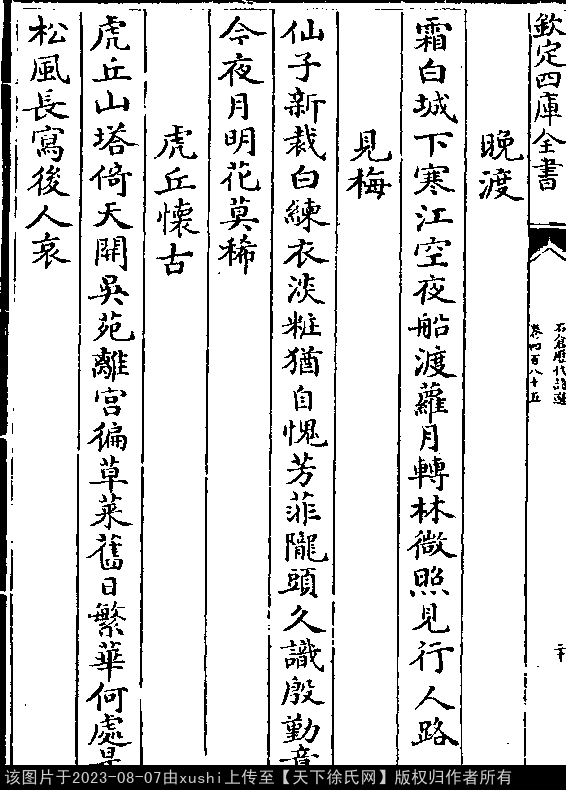 欽定四庫全書
石倉歷代詩選
卷四百八十五
二十
晚渡
霜白城下寒江空夜船渡蘿月轉林微照見行人路
見梅
仙子新裁白練衣淡粧猶自愧芳菲隴頭久識殷勤意
今夜月明花莫稀
虎丘懷古
虎丘山塔倚天開吳苑離宮徧草萊舊日繁華何處是
松風長寫後人哀
该图片于2023-08-07由xushi上传至【天下徐氏网】版权归作者所有